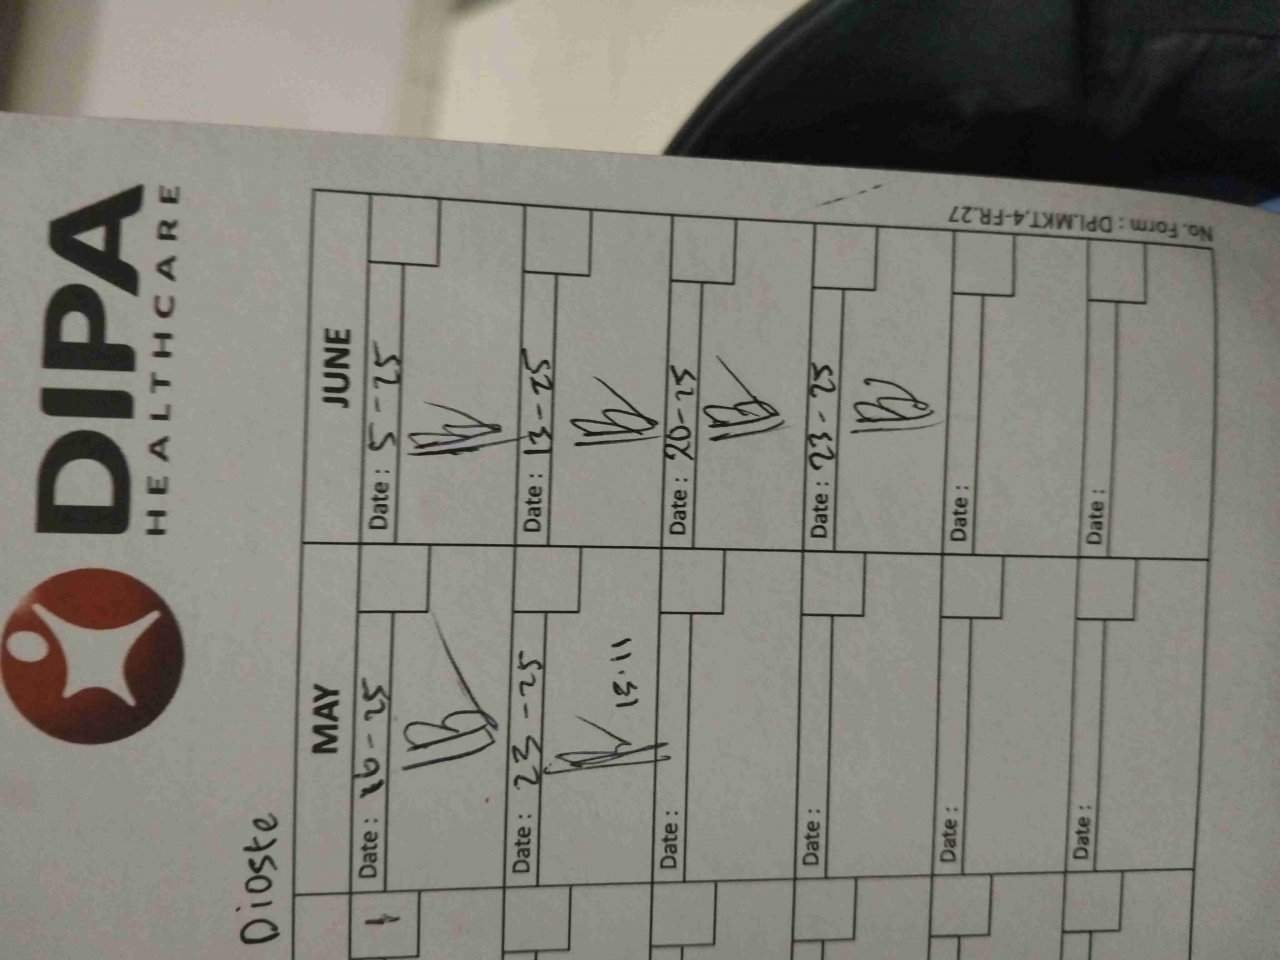 DIPA
HEALTHCARE
Dioste
MAY
JUNE
Date : 16-25
Date : 5-25
Date : 23-25
13.11
Date : 13-25
Date :
Date : 20-25
Date :
Date : 23-25
Date :
Date :
Date :
Date :
No. Form : DPI.MKT.4-FR.27